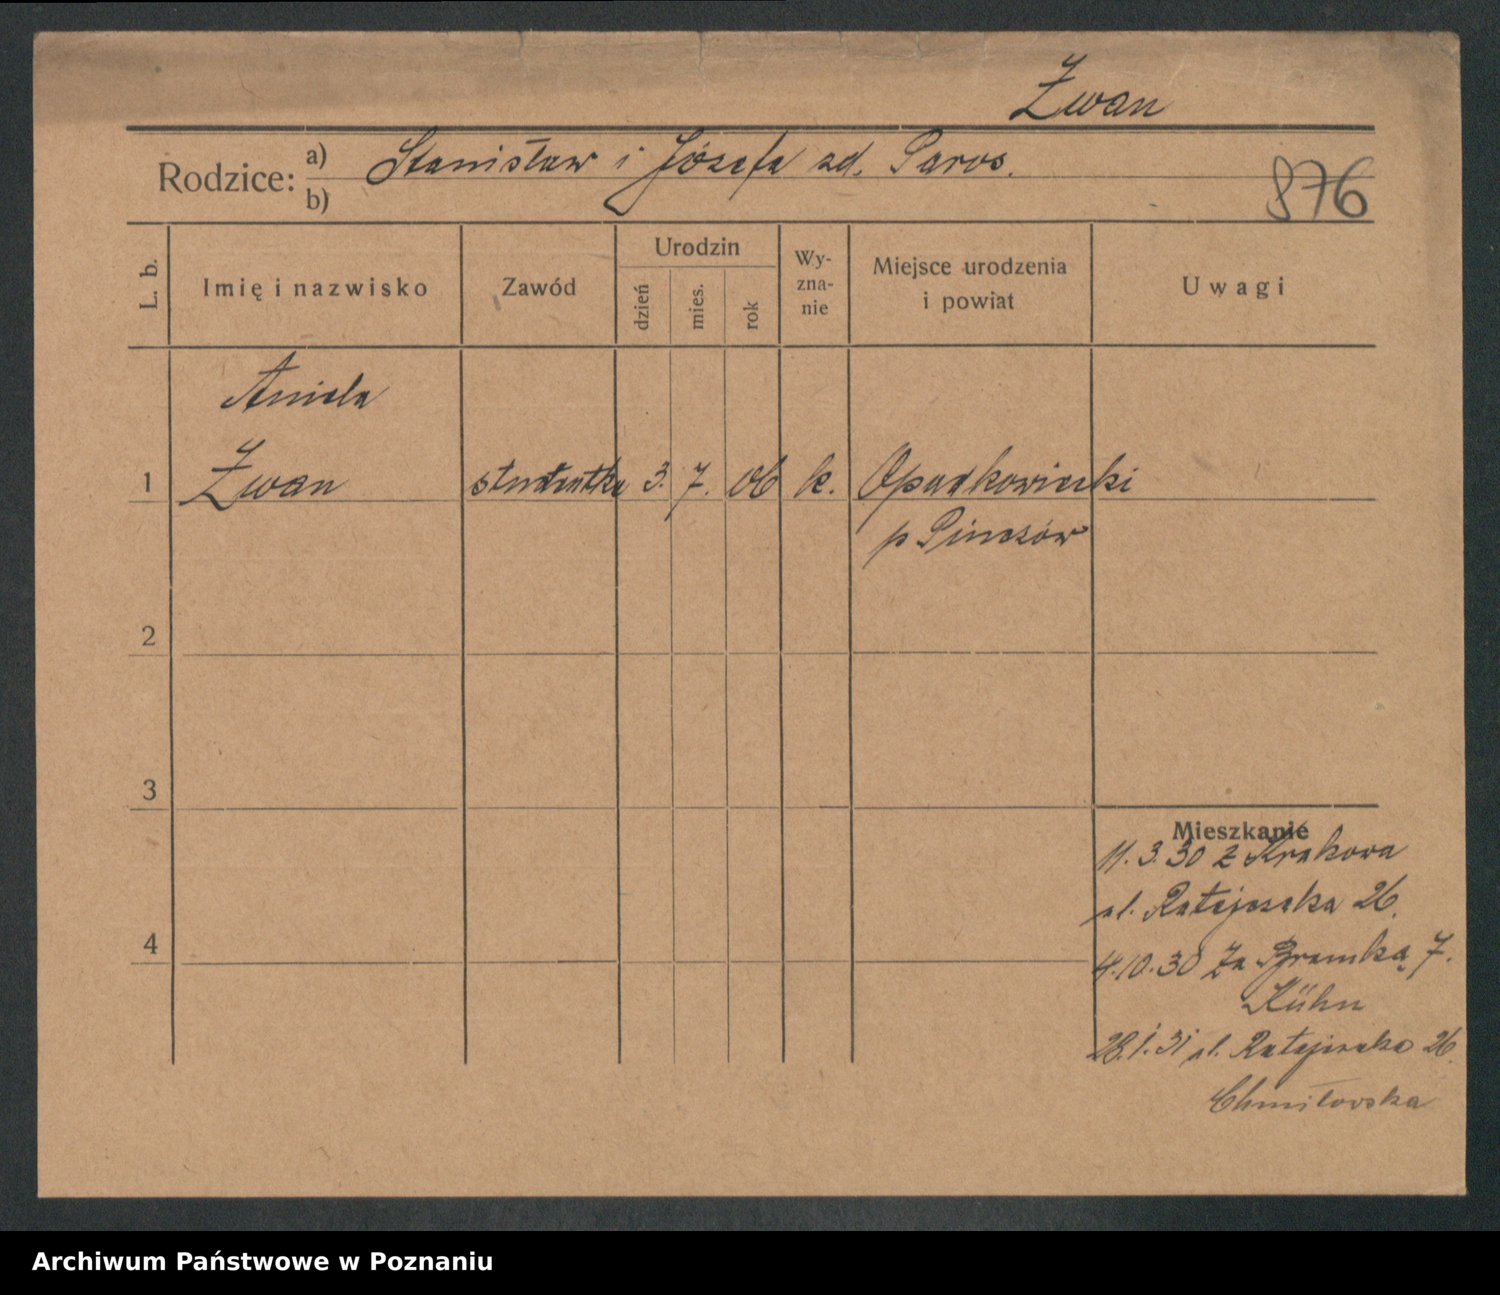 Zwan
Rodzice: a) Stanisław i Józefa zd. Paros.
b)
876
L. b.
Imię i nazwisko
Zawód
Urodzin
dzień
mies.
rok
Wy-
zna-
nie
Miejsce urodzenia
i powiat
Uwagi
Aniela
1 Zwan studentka 3. 7. 06 k.
p Pinczów
2
3
4
Mieszkanie
11. 3. 30 z Krakowa
ul. Ratajczaka 26.
4. 10. 30 Za Bramką 7.
Kühn
28. 1. 31 ul. Ratajczaka 26.
Chmiłowska
Archiwum Państwowe w Poznaniu